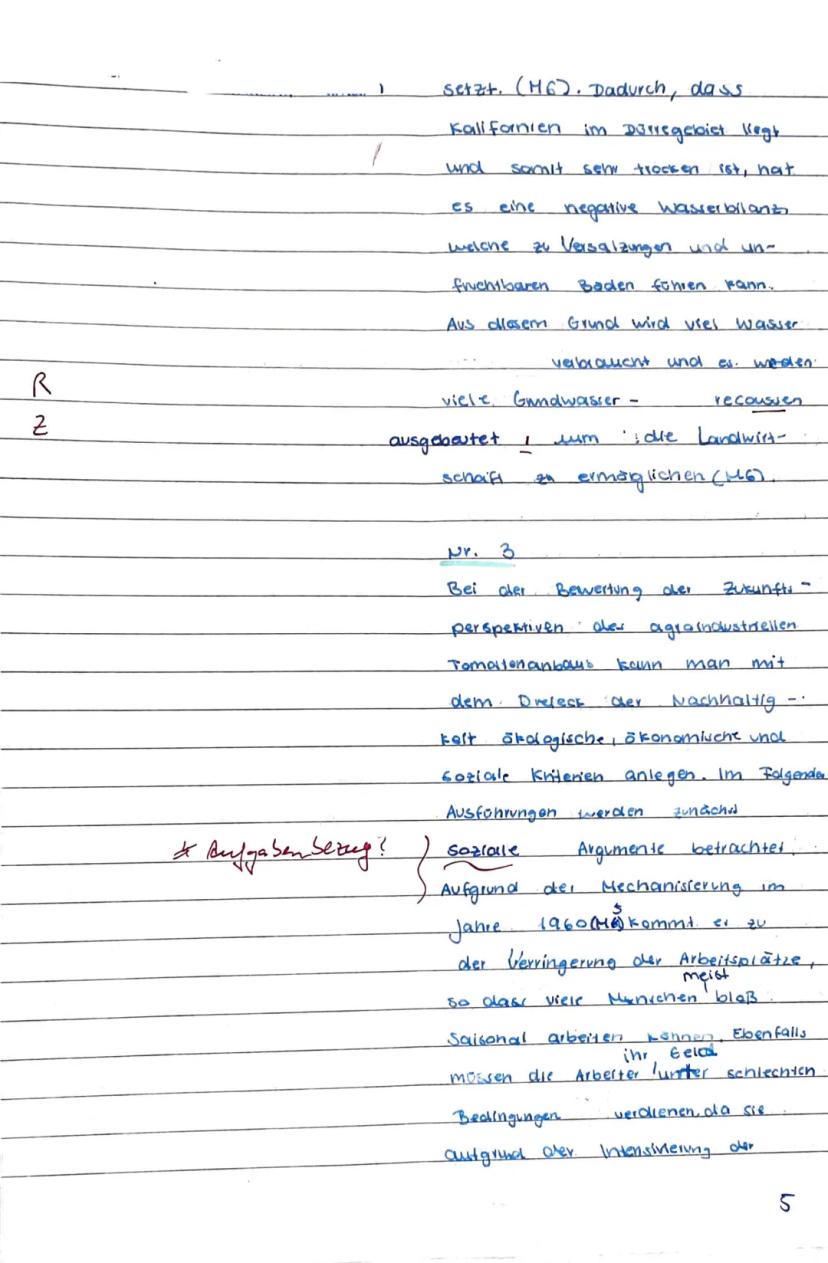 setzt. (M6). Dadurch, dass
Kalifornien im Dürregebiet liegt
und somit sehr trocken ist, hat
es eine negative Wasserbilanz
welche zu Versalzungen und un-
fruchtbaren Boden führen kann.
Aus diesem Grund wird viel Wasser
verbraucht und es werden
R viele Grundwasser- recoussen
Z ausgebeutet , um die Landwirt-
schaft zu ermöglichen (M6).
Nr. 3
Bei der Bewertung der Zukunfts-
perspektiven des agraindustriellen
Tomatenanbaus kann man mit
dem Dreieck der Nachhaltig-
keit ökologische, ökonomische und
soziale Kriterien anlegen. Im Folgenden
Ausführungen werden zunächst
* Aufgabenbezug? soziale Argumente betrachtet.
Aufgrund der Mechanisierung im
Jahre 1960 (M5) kommt es zu
der Verringerung der Arbeitsplätze,
so dass viele Menschen meist bloß
Saisonal arbeiten können. Ebenfalls
müssen die Arbeiter ihr Geld unter schlechten
Bedingungen verdienen, da sie
aufgrund der Intensivierung der
5